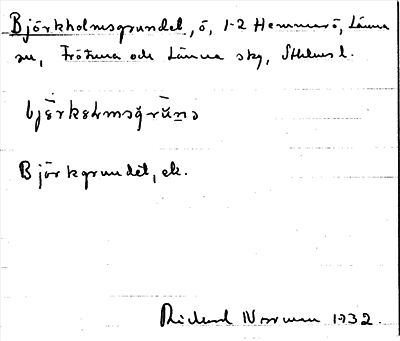 Björkholmsgrundet, ö, 1-2 Hemmarö, Länna
sn, Frötuna och Länna skg, Sthlms l.
Björkgrundet, ek.
Rickard Norrman 1932.